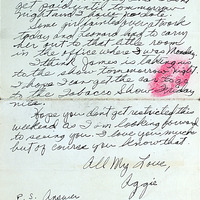 get paid until tommorrow
night and I haven't
girl fainted over work
today and Leonard had to carry
her out to that little room
in the office where I was Monday.
I think James is taking us
to the show tommorrow night.
I hope I can get the car to go
on the Tobacco Show Friday
nite.
Hope you don't get restricted this
weekend as I am looking forward
to seeing you. I love you much
but of course you know that
All My Love,
Aggie
P.S. Answer